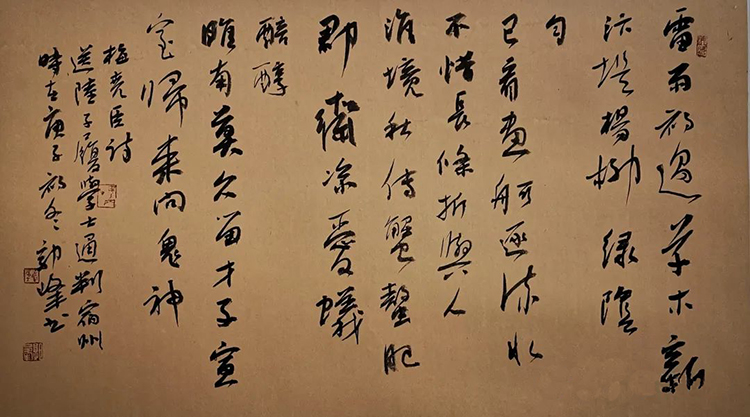 雷雨初過草木新
汴堤楊柳綠陰
勻
已看畫舸逐流水
不惜長條折與人
淮境秋傳蟹螯肥
郡齋涼愛蟻
醅醇
睢南莫久留才子宣
室歸來問鬼神
梅堯臣詩
送陸子履學士通判宿州
時在庚子初冬勁峰书